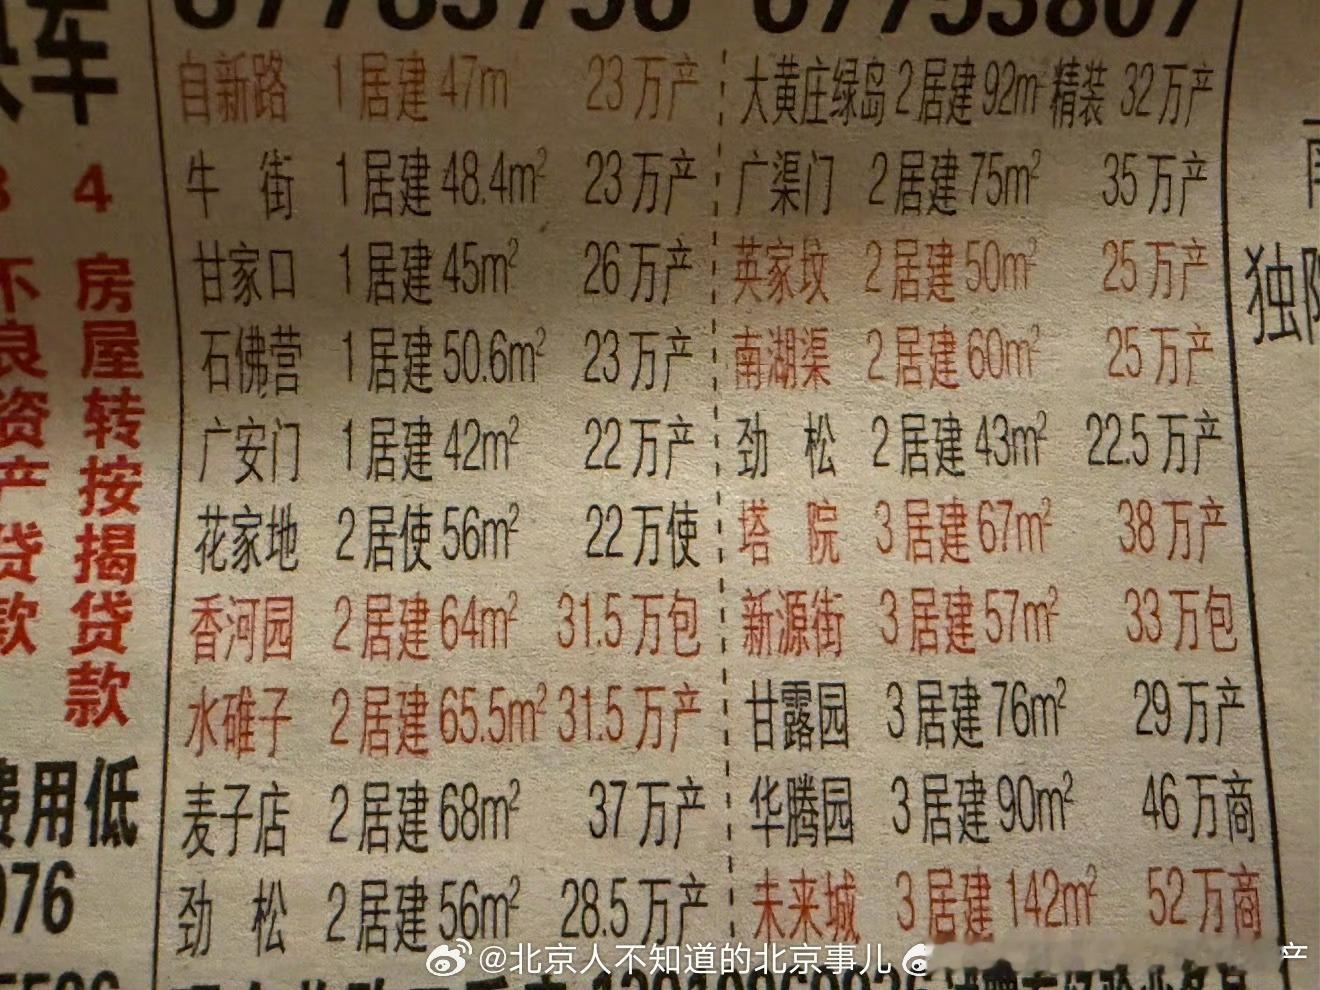 67785756 67753807
自新路 1居建47㎡ 23万产
牛 街 1居建48.4m² 23万产
甘家口 1居建45m² 26万产
石佛营 1居建50.6m² 23万产
广安门 1居建42m² 22万产
花家地 2居使56m² 22万使
香河园 2居建64m² 31.5万包
水碓子 2居建65.5m² 31.5万产
麦子店 2居建68m² 37万产
劲 松 2居建56m² 28.5万产
大黄庄绿岛 2居建92m² 精装 32万产
广渠门 2居建75m² 35万产
英家坟 2居建50m² 25万产
南湖渠 2居建60m² 25万产
劲 松 2居建43m² 22.5万产
塔 院 3居建67m² 38万产
新源街 3居建57m² 33万包
甘露园 3居建76m² 29万产
华腾园 3居建90m² 46万商
未来城 3居建142m² 52万商
车
4
房屋转按揭贷款
不良资产贷款
费用低
976
独
@北京人不知道的北京事儿
产